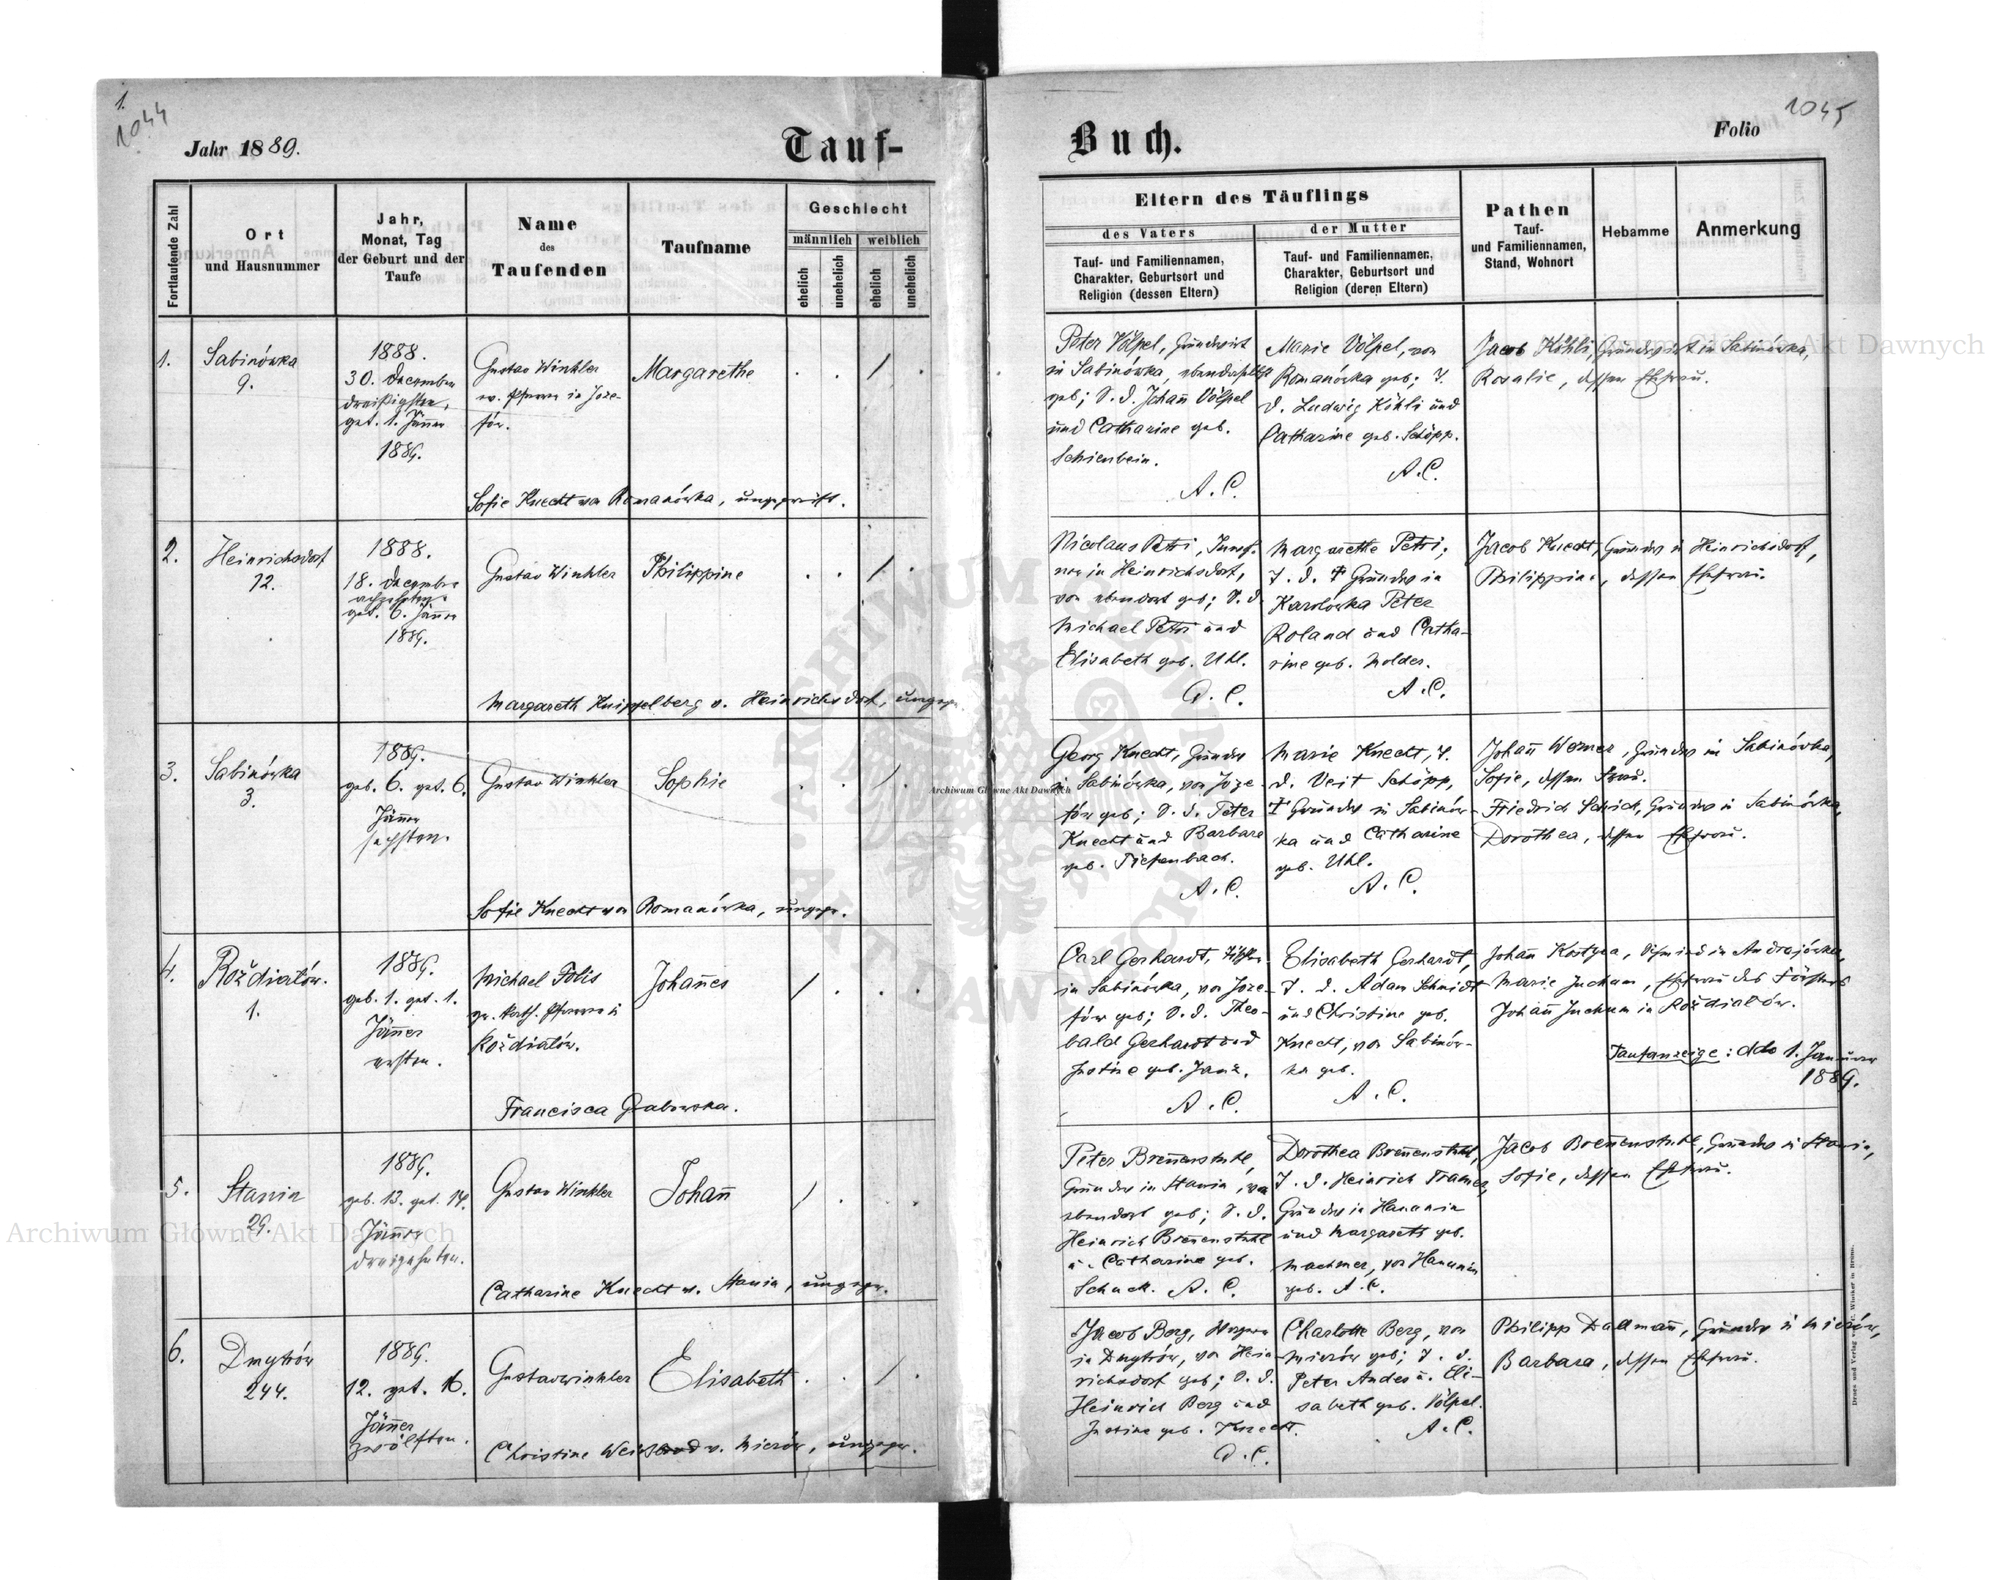 1.
1044
Jahr 1889.
Tauf-
Fortlaufende Zahl
Ort
und Hausnummer
Jahr,
Monat, Tag
der Geburt und der
Taufe
Name
des
Taufenden
Taufname
Geschlecht
männlich
weiblich
ehelich
unehelich
ehelich
unehelich
1.
Sabinówka
9.
1888.
30. December
dreißigsten,
get. 1. Jänner
1889.
Gustav Winkler
ev. Pfarrer in Joze-
fów.
Margarethe
Sofie Knecht von Romanówka, ungeprüft.
2.
Heinrichsdorf
12.
1888.
18. December
achzehnten
get. 6. Jänner
1889.
Gustav Winkler
Philippine
Margareth Knippelberg v. Heinrichsdorf, ungepr.
3.
Sabinówka
3.
1889.
geb. 6. get. 6.
Jänner
sechsten.
Gustav Winkler
Sophie
Sofie Knecht von Romanówka, ungepr.
4.
Roždiałów.
1.
1889.
geb. 1. get. 1.
Jänner
ersten.
Michael Fobis
gr. kath. Pfarrer in
Roždiałów.
Johañes
Francisca Grabowska.
5.
Stanin
29.
1889.
geb. 13. get. 14.
Jänner
dreizehnten.
Gustav Winkler
Johañ
Catharine Knecht v. Stanin, ungepr.
6.
Dmytrów
244.
1889.
12. get. 16.
Jänner
zwölften.
Gustav Winkler
Elisabeth
Christine v. Mierów, ungepr.
1045
Buch.
Folio
Eltern des Täuflings
des Vaters
der Mutter
Tauf- und Familiennamen,
Charakter, Geburtsort und
Religion (dessen Eltern)
Tauf- und Familiennamen,
Charakter, Geburtsort und
Religion (deren Eltern)
Pathen
Tauf-
und Familiennamen,
Stand, Wohnort
Hebamme
Anmerkung
Peter Völpel, Grundwirt
in Sabinówka, ebendaselbst
geb; S. d. Johañ Völpel
und Catharine geb.
Schienbein.
A. C.
Marie Völpel, von
Romanówka geb; T.
d. Ludwig Köhli und
Catharine geb. Schöpp.
A. C.
Jacob Köhli, Grundwirt in Sabinówka,
Rosalie, dessen Ehefrau.
Nicolaus Petri,
in Heinrichsdorf,
von ebendort geb; S. d.
Michael Petri und
Elisabeth geb. Uhl.
A. C.
Margarethe Petri,
T. d. † Grundw in
Karolówka Peter
Roland und Catha-
rine geb. Molder.
A. C.
Jacob Knecht, Grundw in Heinrichsdorf,
Philippine, dessen Ehefrau.
Georg Knecht, Grundw
in Sabinówka, von Joze-
fów geb; S. d. Peter
Knecht und Barbara
geb. Tiefenbach.
A. C.
Marie Knecht, T.
d. Veit Schöpp,
† Grundw in Sabinów-
ka und Catharine
geb. Uhl.
A. C.
Johañ Werner, Grundw in Sabinówka,
Sofie, dessen Frau.
Friedrich Schick, Grundw in Sabinówka,
Dorothea, dessen Ehefrau.
Carl Gerhardt,
in Sabinówka, von Joze-
fów geb; S. d. Theo-
bald Gerhardt und
Justine geb. Janz.
A. C.
Elisabeth Gerhardt,
T. d. Adam Schmidt
und Christine geb.
Knecht, von Sabinów-
ka geb.
A. C.
Johañ in Andrzejówka,
Marie Juchum, Ehefrau des Försters
Johañ Juchum in Roždiałów.
Taufanzeige: ddo 1. Januar
1889.
Peter Breñenstuhl,
Grundw in Stanin, von
ebendort geb; S. d.
Heinrich Breñenstuhl
u. Catharine geb.
Schuck. A. C.
Dorothea Breñenstuhl,
T. d. Heinrich Kramer,
Grundw in Hanunin
und Margareth geb.
Machmer, von Hanunin
geb. A. C.
Jacob Breñenstuhl, Grundw in Stanin,
Sofie, dessen Ehefrau.
Jacob Berg, Wagner
in Dmytrów, von Hein-
richsdorf geb; S. d.
Heinrich Berg und
Justine geb. Knecht.
A. C.
Charlotte Berg, von
Mierów geb; T. d.
Peter Andes u. Eli-
sabeth geb. Völpel.
A. C.
Philipp Dallmañ, Grundw in Mierów,
Barbara, dessen Ehefrau.
Archiwum Główne Akt Dawnych
Archiwum Główne Akt Dawnych
Archiwum Główne Akt Dawnych
ARCHIWUM GŁÓWNE AKT DAWNYCH